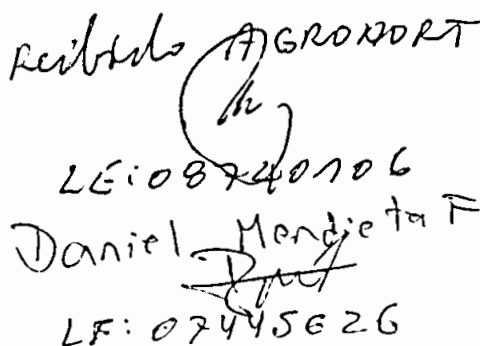 Recibido AGRONORT
LE: 08740106
Daniel Mendieta F
LE: 07445626